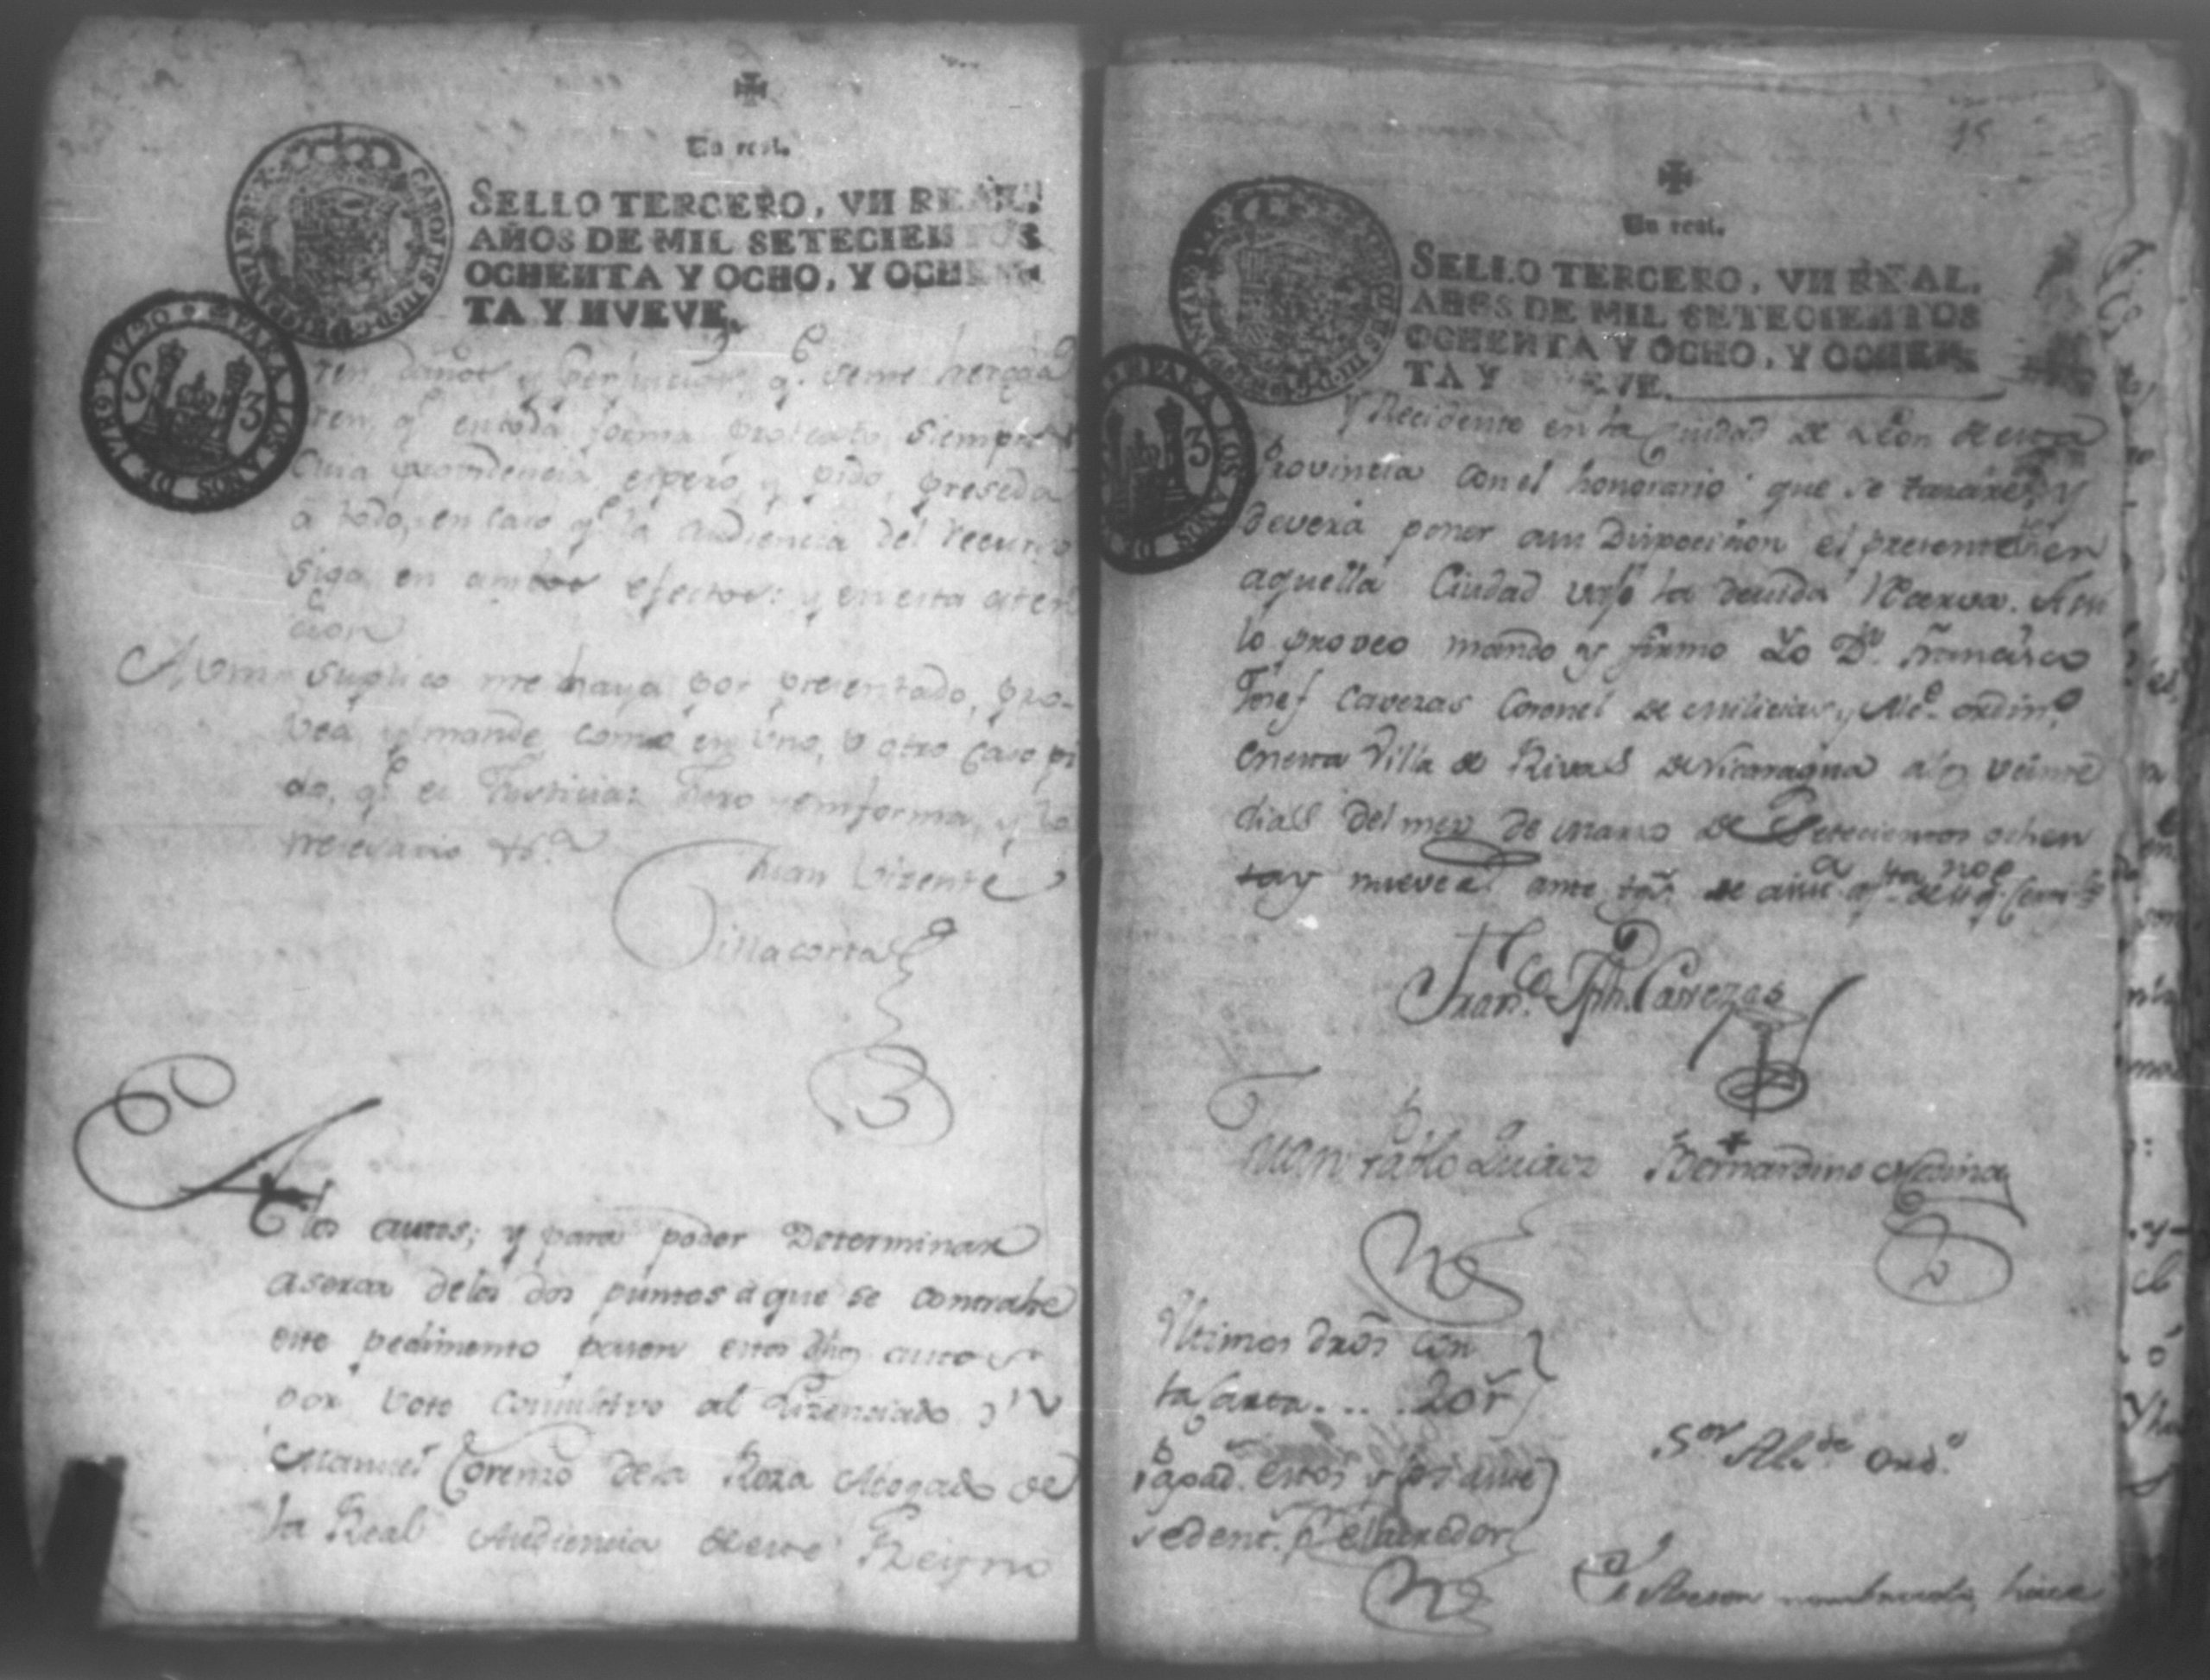 Un real.
SELLO TERCERO, VN REAL,
AÑOS DE MIL SETECIENTOS
OCHENTA Y OCHO, Y OCHEN
TA Y NVEVE.
CAROLUS III D G HISPANIAR REX
PARA LOS AÑOS DE 1790 Y 91
S 3
ren daños, y perjuicios, q.e se me
ren, q.e en toda forma protexto, siempre
Cuia providencia espero, y pido, preseda
a todo, en caso q.e la audiencia del recurso
siga en ambos efectos: y en esta aten
cion
A Vm. Suplico me haya por presentado, pro-
vea y mande como en uno, u otro caso pi
do, q.e es Justicia: Juro en forma, y lo
nesesario &.a
Juan Vizente
Villacorta
A los autos; y para poder Determinar
aserca delos dos puntos a que se contrahe
este pedimento pasen estos dhos autos
por Voto Consultivo al Lizenciado Dn
Manuel Lorenzo dela Roza Abogado de
la Real Audiencia de este Reyno
15
Un real.
SELLO TERCERO, VN REAL,
AÑOS DE MIL SETECIENTOS
OCHENTA Y OCHO, Y OCHEN
TA Y NVEVE.
PARA LOS AÑOS DE
3
Y Recidente en la Ciudad de Leon de esta
Provincia con el honorario que se tazare, y
devera poner a su Disposicion el presente en
aquella Ciudad vajo la devida Rezerva. Asi
lo proveo mando y firmo Yo Dn. Francisco
Josef Caverzas Coronel de Milicias, y Alc.e ordin.o
en esta Villa de Rivas de Nicaragua a los veinte
dias del mes de Marzo de Setecientos ochen
ta y nueve ante tgs. de
Fran.co Jph. Caverzas
Juan Pablo Quiroz Bernardino Medina
Ultimos dros con
tasarta.... 20 r
Papad. estos y los ante
sedent. p.r el acredor
S.or Alc.de Ord.o
El Asesor nombrado, hace